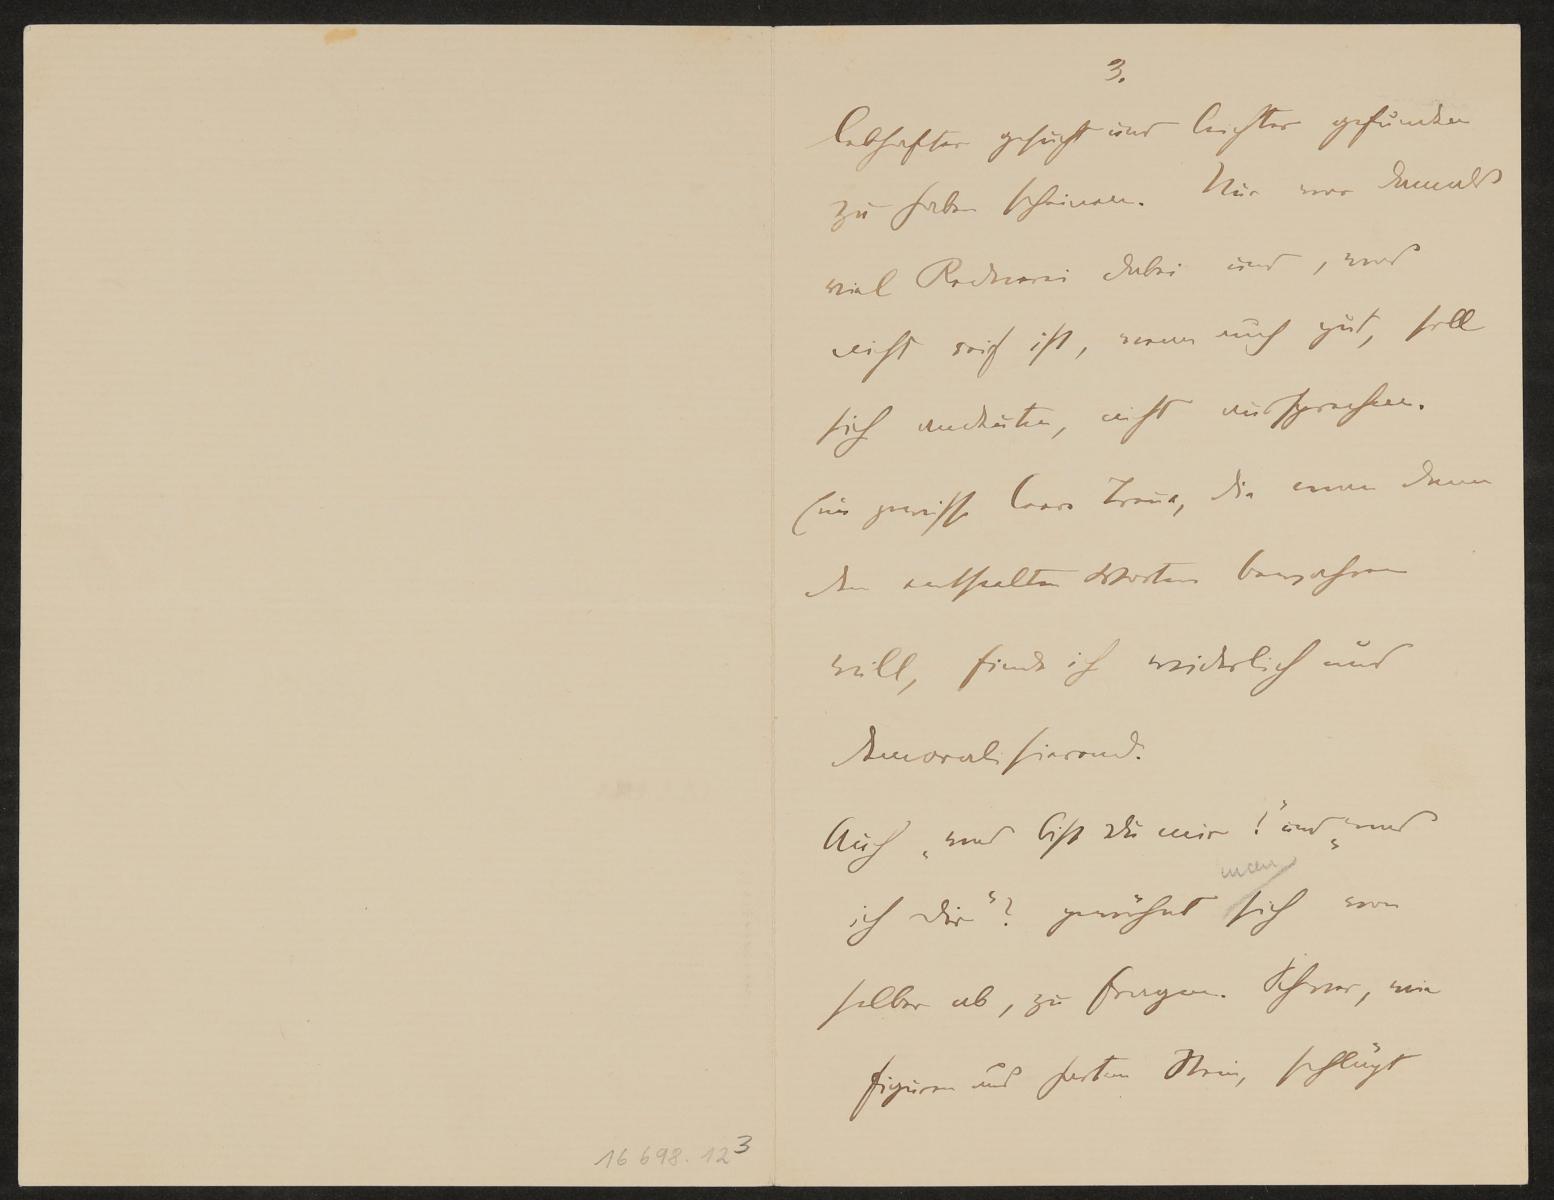 3.
lebhafter gesucht und leichter gefunden
zu haben scheinen. Nur war damals
viel Rednerei dabei und, was
nicht reif ist, wenn auch gut, soll
sich andeuten, nicht aussprechen.
Eine gewisse leere Treue, die man dann
den enthaltenen Worten bewahren
will, finde ich widerlich und
demoralisierend.
Auch „was bist Du mir!" und „was
man
ich Dir"? gewöhnt sich von
selber ab, zu fragen. Schwer, wie
figuren und harten Stein, schlägt
16 698. 12 3